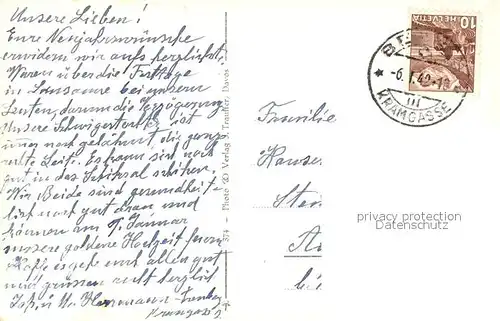 Unsere Lieben!
Eure Neujahrswünsche
erwidern wir aufs herzlichste
Waren über die Festtage
in Lausanne bei unsern
Leuten, darum die Verzögerung
Unsere Schwiegertochter ist
noch gelähmt, die ganze
rechte Seite. Es kann sich noch
gut in das Schicksal schicken.
Wir Beide sind gesundheit-
lich noch gut dran und
können am 9. Januar
unsere goldene Hochzeit feiern
Hoffe es gehe euch allen gut
und grüssen euch herzlich
Kramgasse
374 - Photo & Verlag Davos
HELVETIA 10
BERN
-6.I.42-18
III
KRAMGASSE
Familie
Hause
privacy protection
Datenschutz